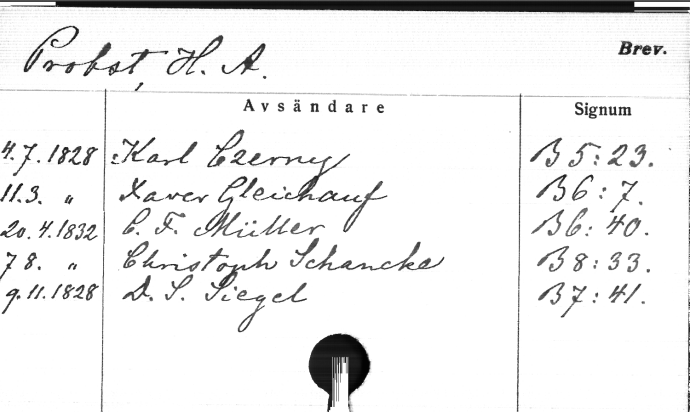 Probst, H. A. Brev.
Avsändare Signum
4.7.1828 Karl Czerny B 5:23.
11.3. " Xaver Gleichauf B6:7.
20.4.1832 C. F. Müller B6:40.
7 8. " Christoph Schancke B8:33.
9.11.1828 D. S. Siegel B7:41.